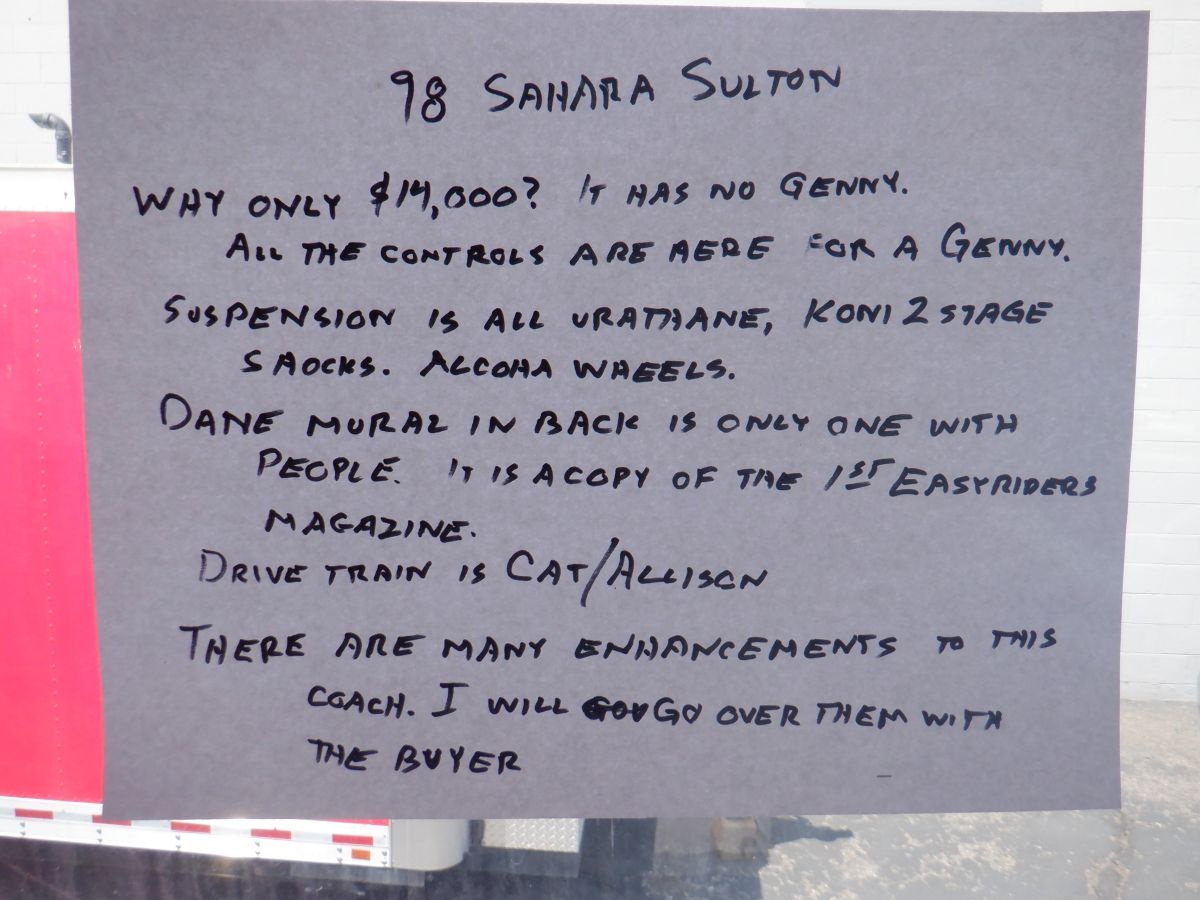 98 SAHARA SULTON
WHY ONLY $14,000? IT HAS NO GENNY.
ALL THE CONTROLS ARE HERE FOR A GENNY.
SUSPENSION IS ALL URATHANE, KONI 2 STAGE
SHOCKS. ALCOHA WHEELS.
DANE MURAL IN BACK IS ONLY ONE WITH
PEOPLE. IT IS A COPY OF THE 1ST EASYRIDERS
MAGAZINE.
DRIVE TRAIN IS CAT/ALLISON
THERE ARE MANY ENHANCEMENTS TO THIS
COACH. I WILL GO OVER THEM WITH
THE BUYER